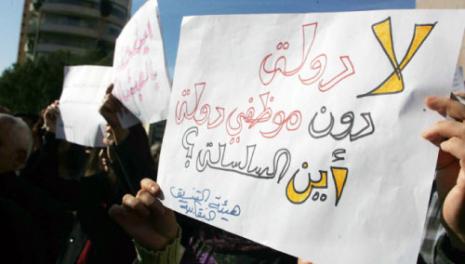 لا دولة
دون موظفي دولة
أين السلسلة؟
هيئة التنسيق
النقابية